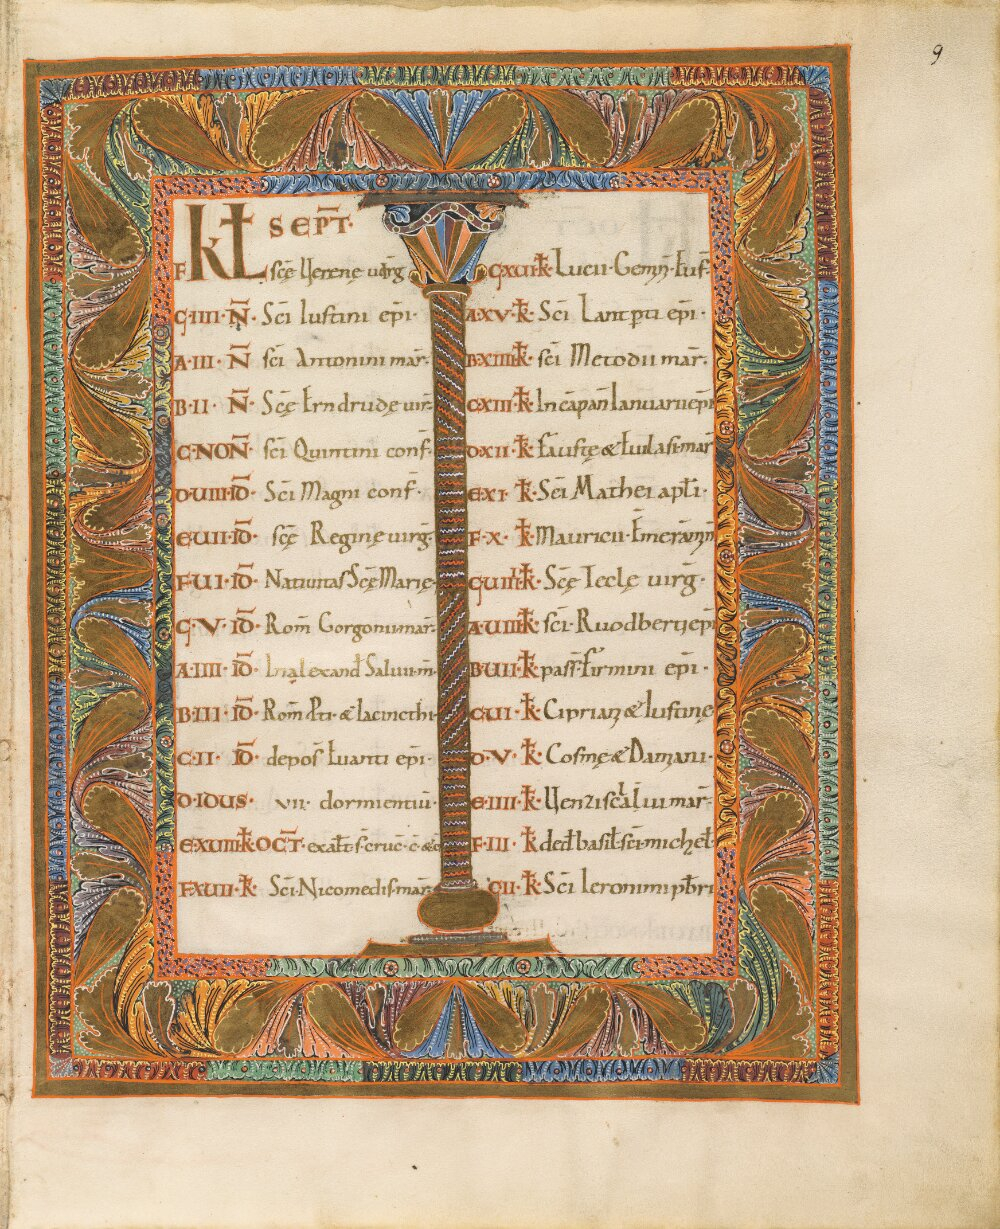 9
KL SEPT̄·
F sc̄ę Uerenę uirḡ
G·IIII·N̄· Sc̄i Iustini ep̄i·
A·III·N̄ sc̄i Antonini mar̄·
B·II·N̄· Sc̄ę Ērndrudę uir̄·
C·NON̄· sc̄i Quintini conf̄·
D·UIII·ID̄· Sc̄i Magni conf̄·
E·UII·ID̄· sc̄ę Reginę uirḡ·
F·UI·ID̄· Natiuitas Sc̄ę Marię·
G·V·ID̄· Rom̄ Gorgoni mar̄·
A·IIII·ID̄· In alexand̄ Salui·m̄·
B·III·ID̄· Rom̄ p̄ti· & Iacincthi·
C·II·ID̄· depos̄ ep̄i·
D·IDUS· VII· dormientiū·
E·XUIIII·k̄ OCT̄· exalt̄ s̄ cruc̄·
F·XUIII·k̄· Sc̄i Nicomedis mar̄·
G·XUII·k̄· Lucii· Gemin̄·
A·XV·k̄· Sc̄i Lantp̄ti ep̄i·
B·XIIII·k̄· sc̄i Metodii mar̄·
C·XIII·k̄· In cāpan̄ Ianuarii ep̄i
D·XII·k̄· faustę & mar̄
E·XI·k̄· Sc̄i Mathei ap̄li·
F·X·k̄· Mauricii· Emeram̄
G·UIIII·k̄· Sc̄ę Teclę uirḡ·
A·UIII·k̄· sc̄i· Ruodberti ep̄i
B·UII·k̄· pass̄· firmini ep̄i·
C·UI·k̄· Ciprian̄ & Iustinę
D·V·k̄· Cosmę & Damiani·
E·IIII·k̄· mar̄·
F·III·k̄· ded̄ basil̄· sc̄i michel̄·
G·II·k̄· Sc̄i Ieronimi pb̄ri